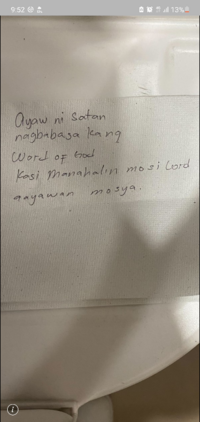 9:52
13%
Ayaw ni Satan
nagbabasa kang
Word of God
Kasi manahalin mo si Lord
aayawan mosya.